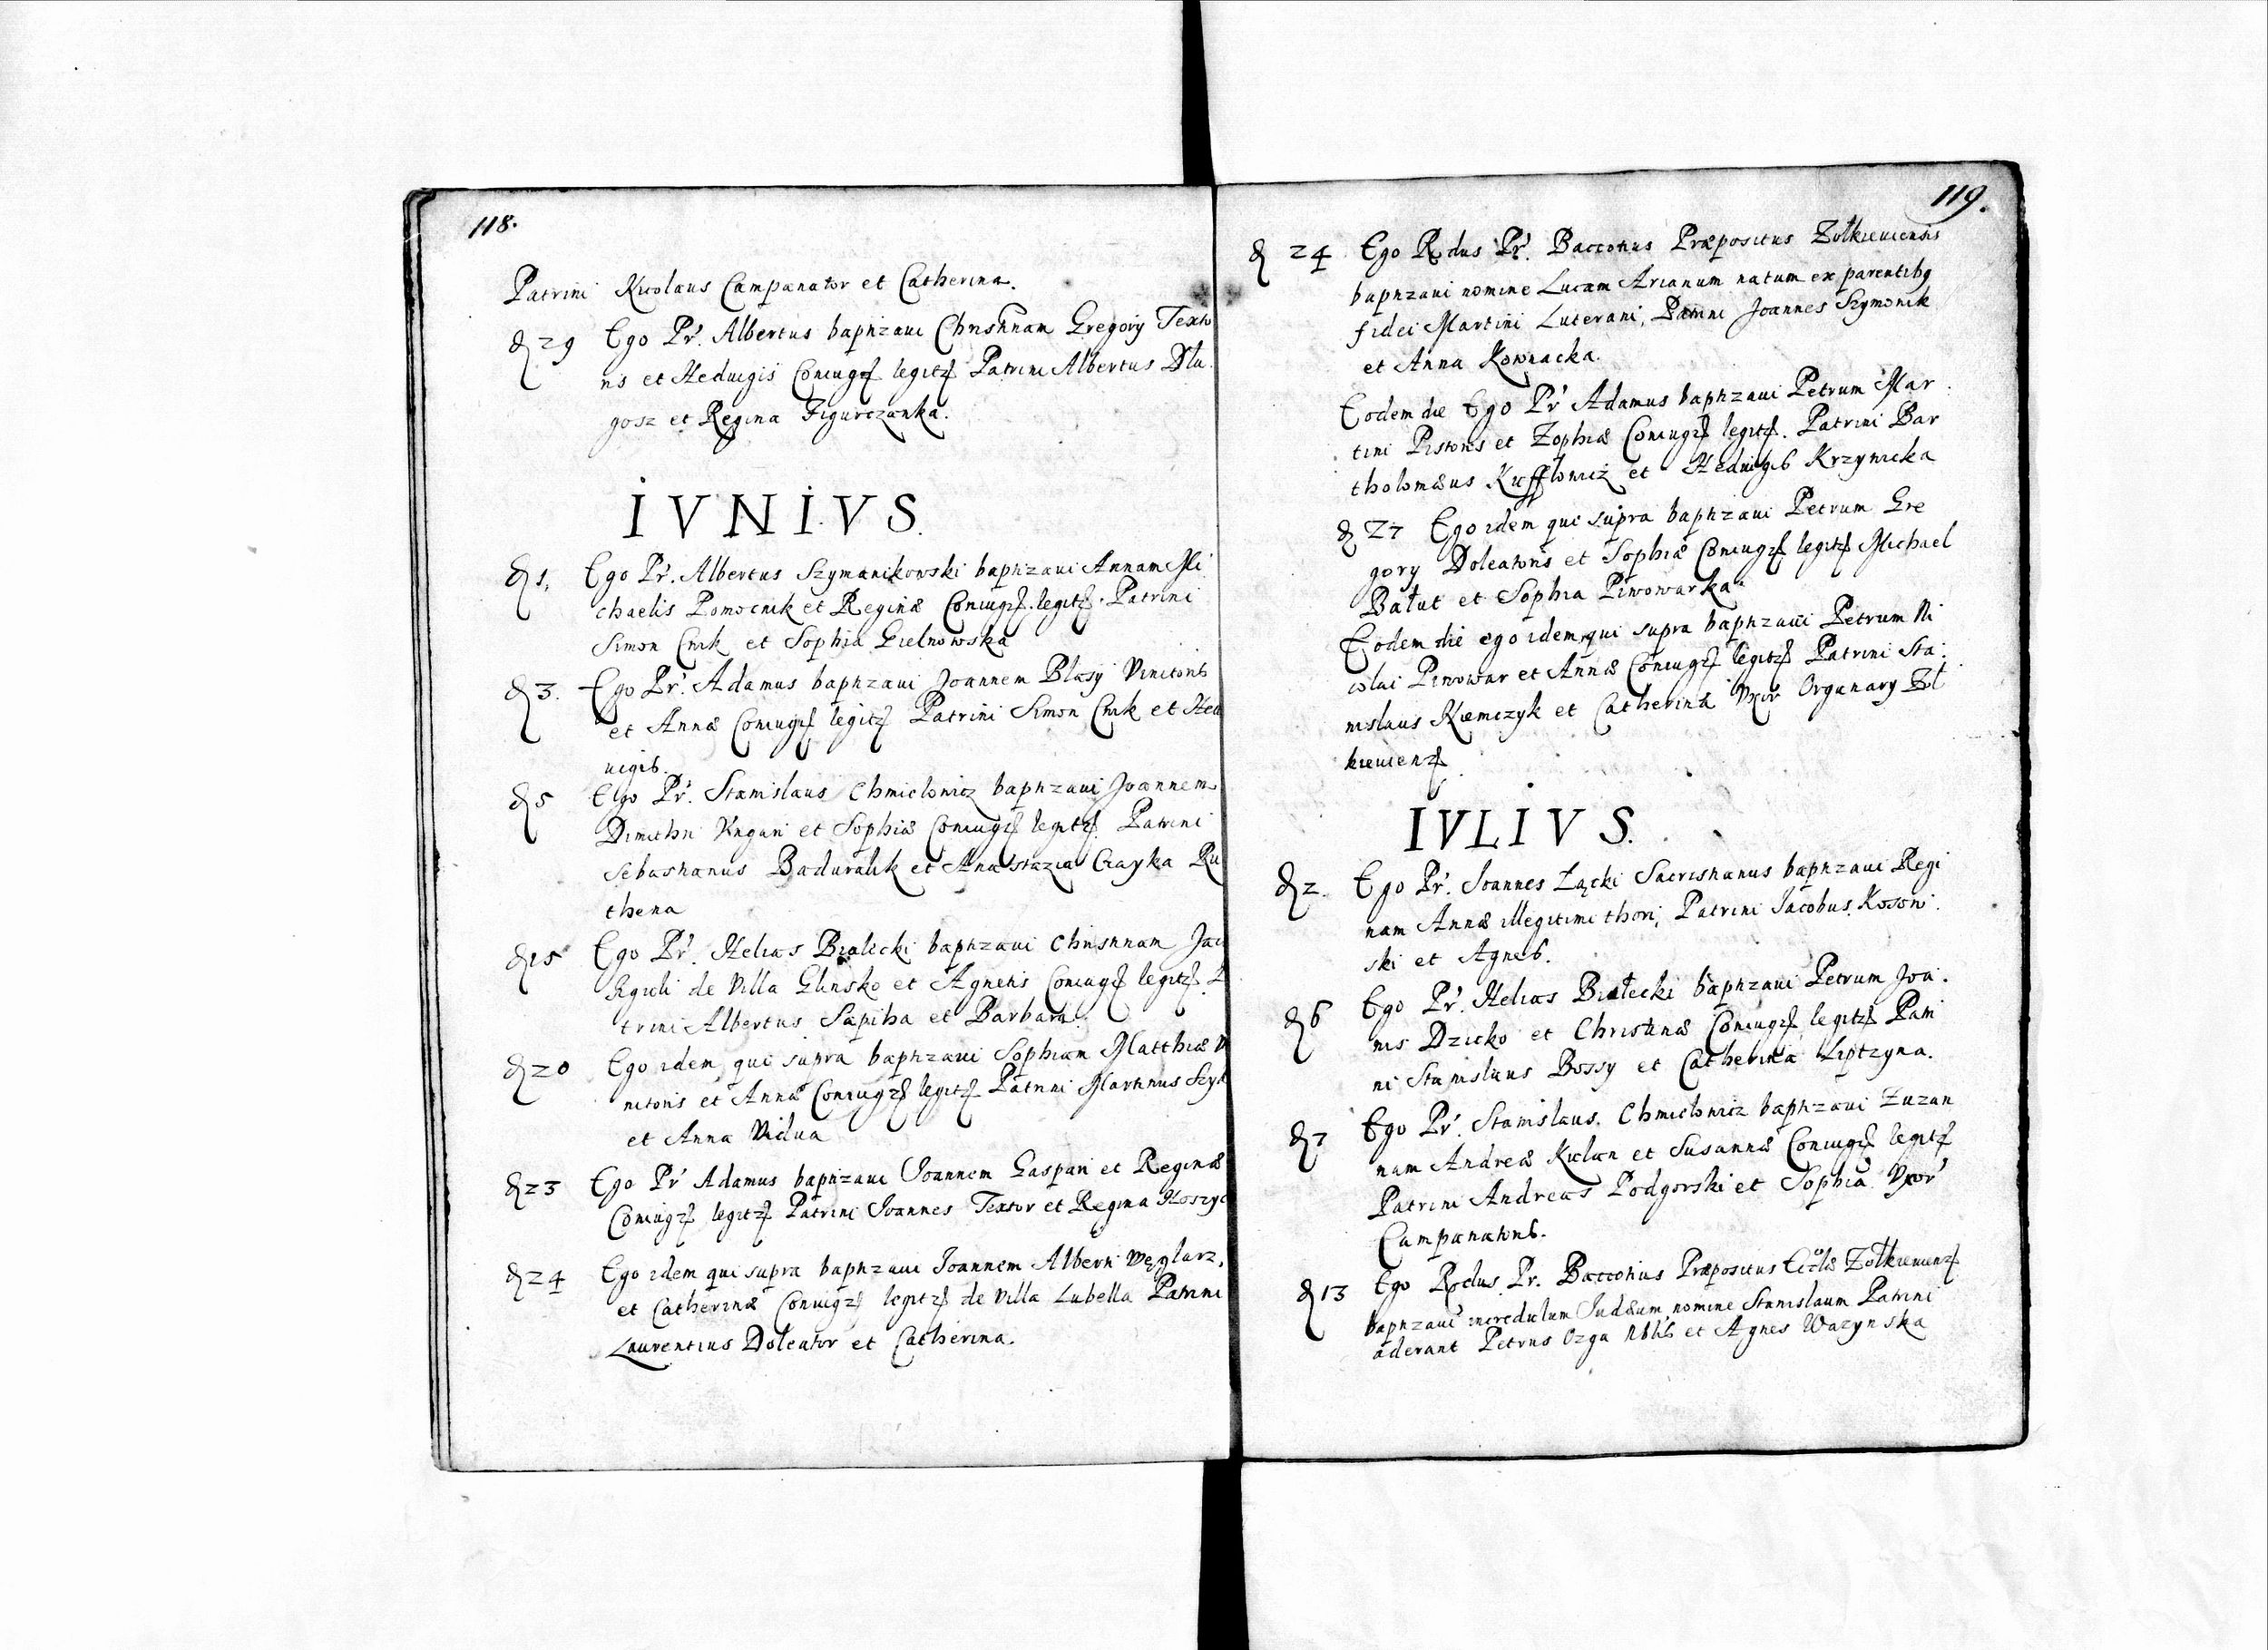 118.
Patrini Nicolaus Campanator et Catherina.
D 29 Ego Pr. Albertus baptizaui Christinam Gregory Texto
ris et Heduigis Coniugū legitū Patrini Albertus Dlu
gosz et Regina Figurczanka.
IVNIVS.
D 1. Ego Pr. Albertus Szymanikowski baptizaui Annam Mi
chaelis Pomocnik et Reginæ Coniugū legitū. Patrini
Simon Cnik et Sophia Gielnowska
D 3. Ego Pr. Adamus baptizaui Joannem Blasy Vinitoris
et Annæ Coniugū legitū Patrini Simon Cnik et Hed
uigis.
D 5 Ego Pr. Stanislaus Chmielowicz baptizaui Joannem
Dimithri Vngari et Sophiæ Coniugū legitū. Patrini
Sebastianus Baduralik et Anastazia Czayka Ru
thena
D 15 Ego Pr. Helias Bialecki baptizaui Christinam Jac
figuli de Villa Glinsko et Agnetis Coniugū legitū. P
trini Albertus Sapiha et Barbara.
D 20 Ego idem qui supra baptizaui Sophiam Matthiæ V
nitoris et Annæ Coniugū legitū Patrini Martinus
et Anna Vidua
D 23 Ego Pr Adamus baptizaui Joannem Gaspari et Reginæ
Coniugū legitū Patrini Joannes Textor et Regina
D 24 Ego idem qui supra baptizaui Joannem Alberti Węglarz,
et Catherinæ Coniugū legitū de Villa Lubella Patrini
Laurentius Doleator et Catherina.
119.
D 24 Ego Rdus Pr. Bacconus Præpositus Zolkieuiensis
baptizaui nomine Lucam Arianum natum ex parentibg
fidei Martini Luterani, Patrini Joannes Szymonik
et Anna Kownacka.
Eodem die Ego Pr Adamus baptizaui Petrum Mar
tini Pistoris et Zophiæ Coniugū legitū. Patrini Bar
tholomæus Kufflowicz et Heduigis Krzynicka
D 27 Ego idem qui supra baptizaui Petrum Gre
gory Doleatoris et Sophiæ Coniugū legitū Michael
Bałut et Sophia Piwowarka
Eodem die ego idem qui supra baptizaui Petrum Ni
colai Piwowar et Annæ Coniugū legitū Patrini Sta
nislaus Niemczyk et Catherina Vxor Organary Zol
kieuienū
IVLIVS.
D 2. Ego Pr. Joannes Łącki Sacristianus baptizaui Regi
nam Annæ illegitimi thori, Patrini Jacobus Kosow
ski et Agnes.
D 6 Ego Pr. Helias Białecki baptizaui Petrum Joa
nis Dzicko et Christinæ Coniugū legitū Patri
ni Stanislaus Bossy et Catherina Liptzyna.
D 7 Ego Pr. Stanislaus Chmielowicz baptizaui Zuzan
nam Andreæ Kielan et Susannæ Coniugū legitū
Patrini Andreas Podgorski et Sophia Vxor
Campanatoris.
D 13 Ego Rdus Pr. Bacconus Præpositus Eccliæ Zolkieuienū
baptizaui incredulum Judæum nomine Stanislaum Patrini
aderant Petrus Ozga Nblis et Agnes Wazynska